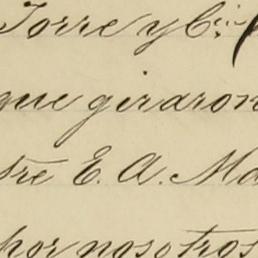 Torre y Cía
que giraron
tre E. A. Ma
por nosotros